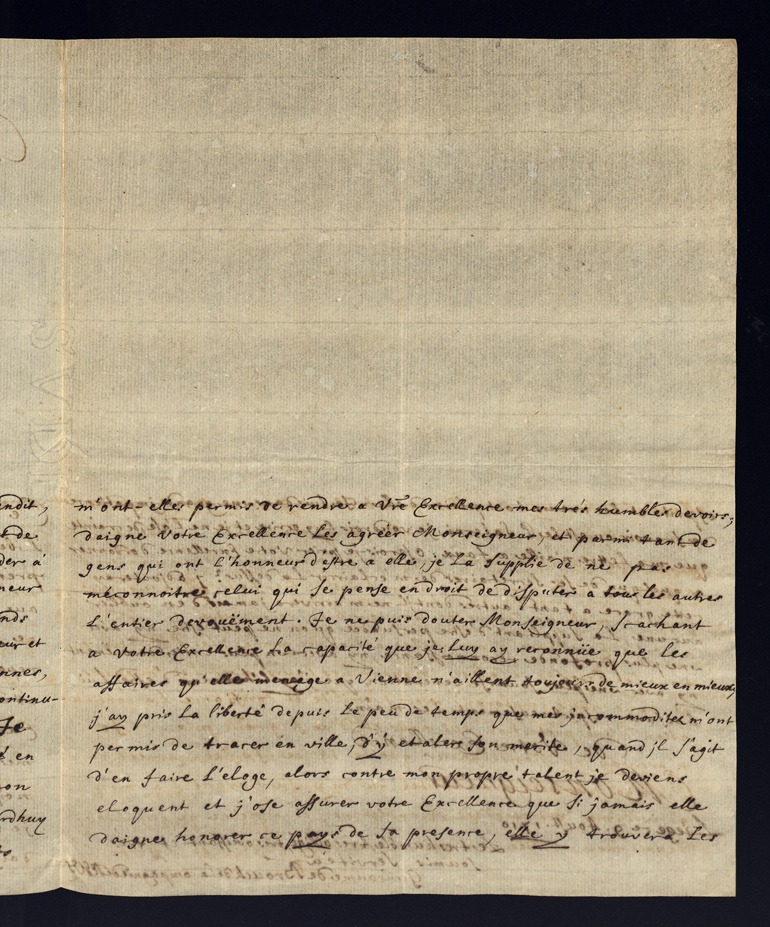 endit,
t de
der à
neur
nds
eur et
ennes,
continu-
Je
é en
ron
urdhuy
m'ont-elles permis de rendre a Vre Excellence mes trés humbles devoirs;
daigne Votre Excellence Les agréer Monseigneur, et parmi tant de
gens qui ont l'honneur d'estre a elle, je La Supplie de ne pas
méconnoitre celui qui Se pense en droit de disputer à tous les autres
L'entier devouëment. Je ne puis douter Monseigneur, Scachant
a Votre Excellence La capacité que je Luy ay reconnüe que les
affaires qu'elle menage a Vienne n'aillent toujours de mieux en mieux,
j'ay pris La liberté depuis Le peu de temps que mes jncommodités m'ont
permis de tracer en ville, d'y etaler Son merite, quand jl S'agit
d'en faire L'éloge, alors contre mon propre talent je deviens
eloquent et j'ose assurer votre Excellence que Si jamais elle
daigne honorer ce pays de Sa presence, elle y trouvera Les